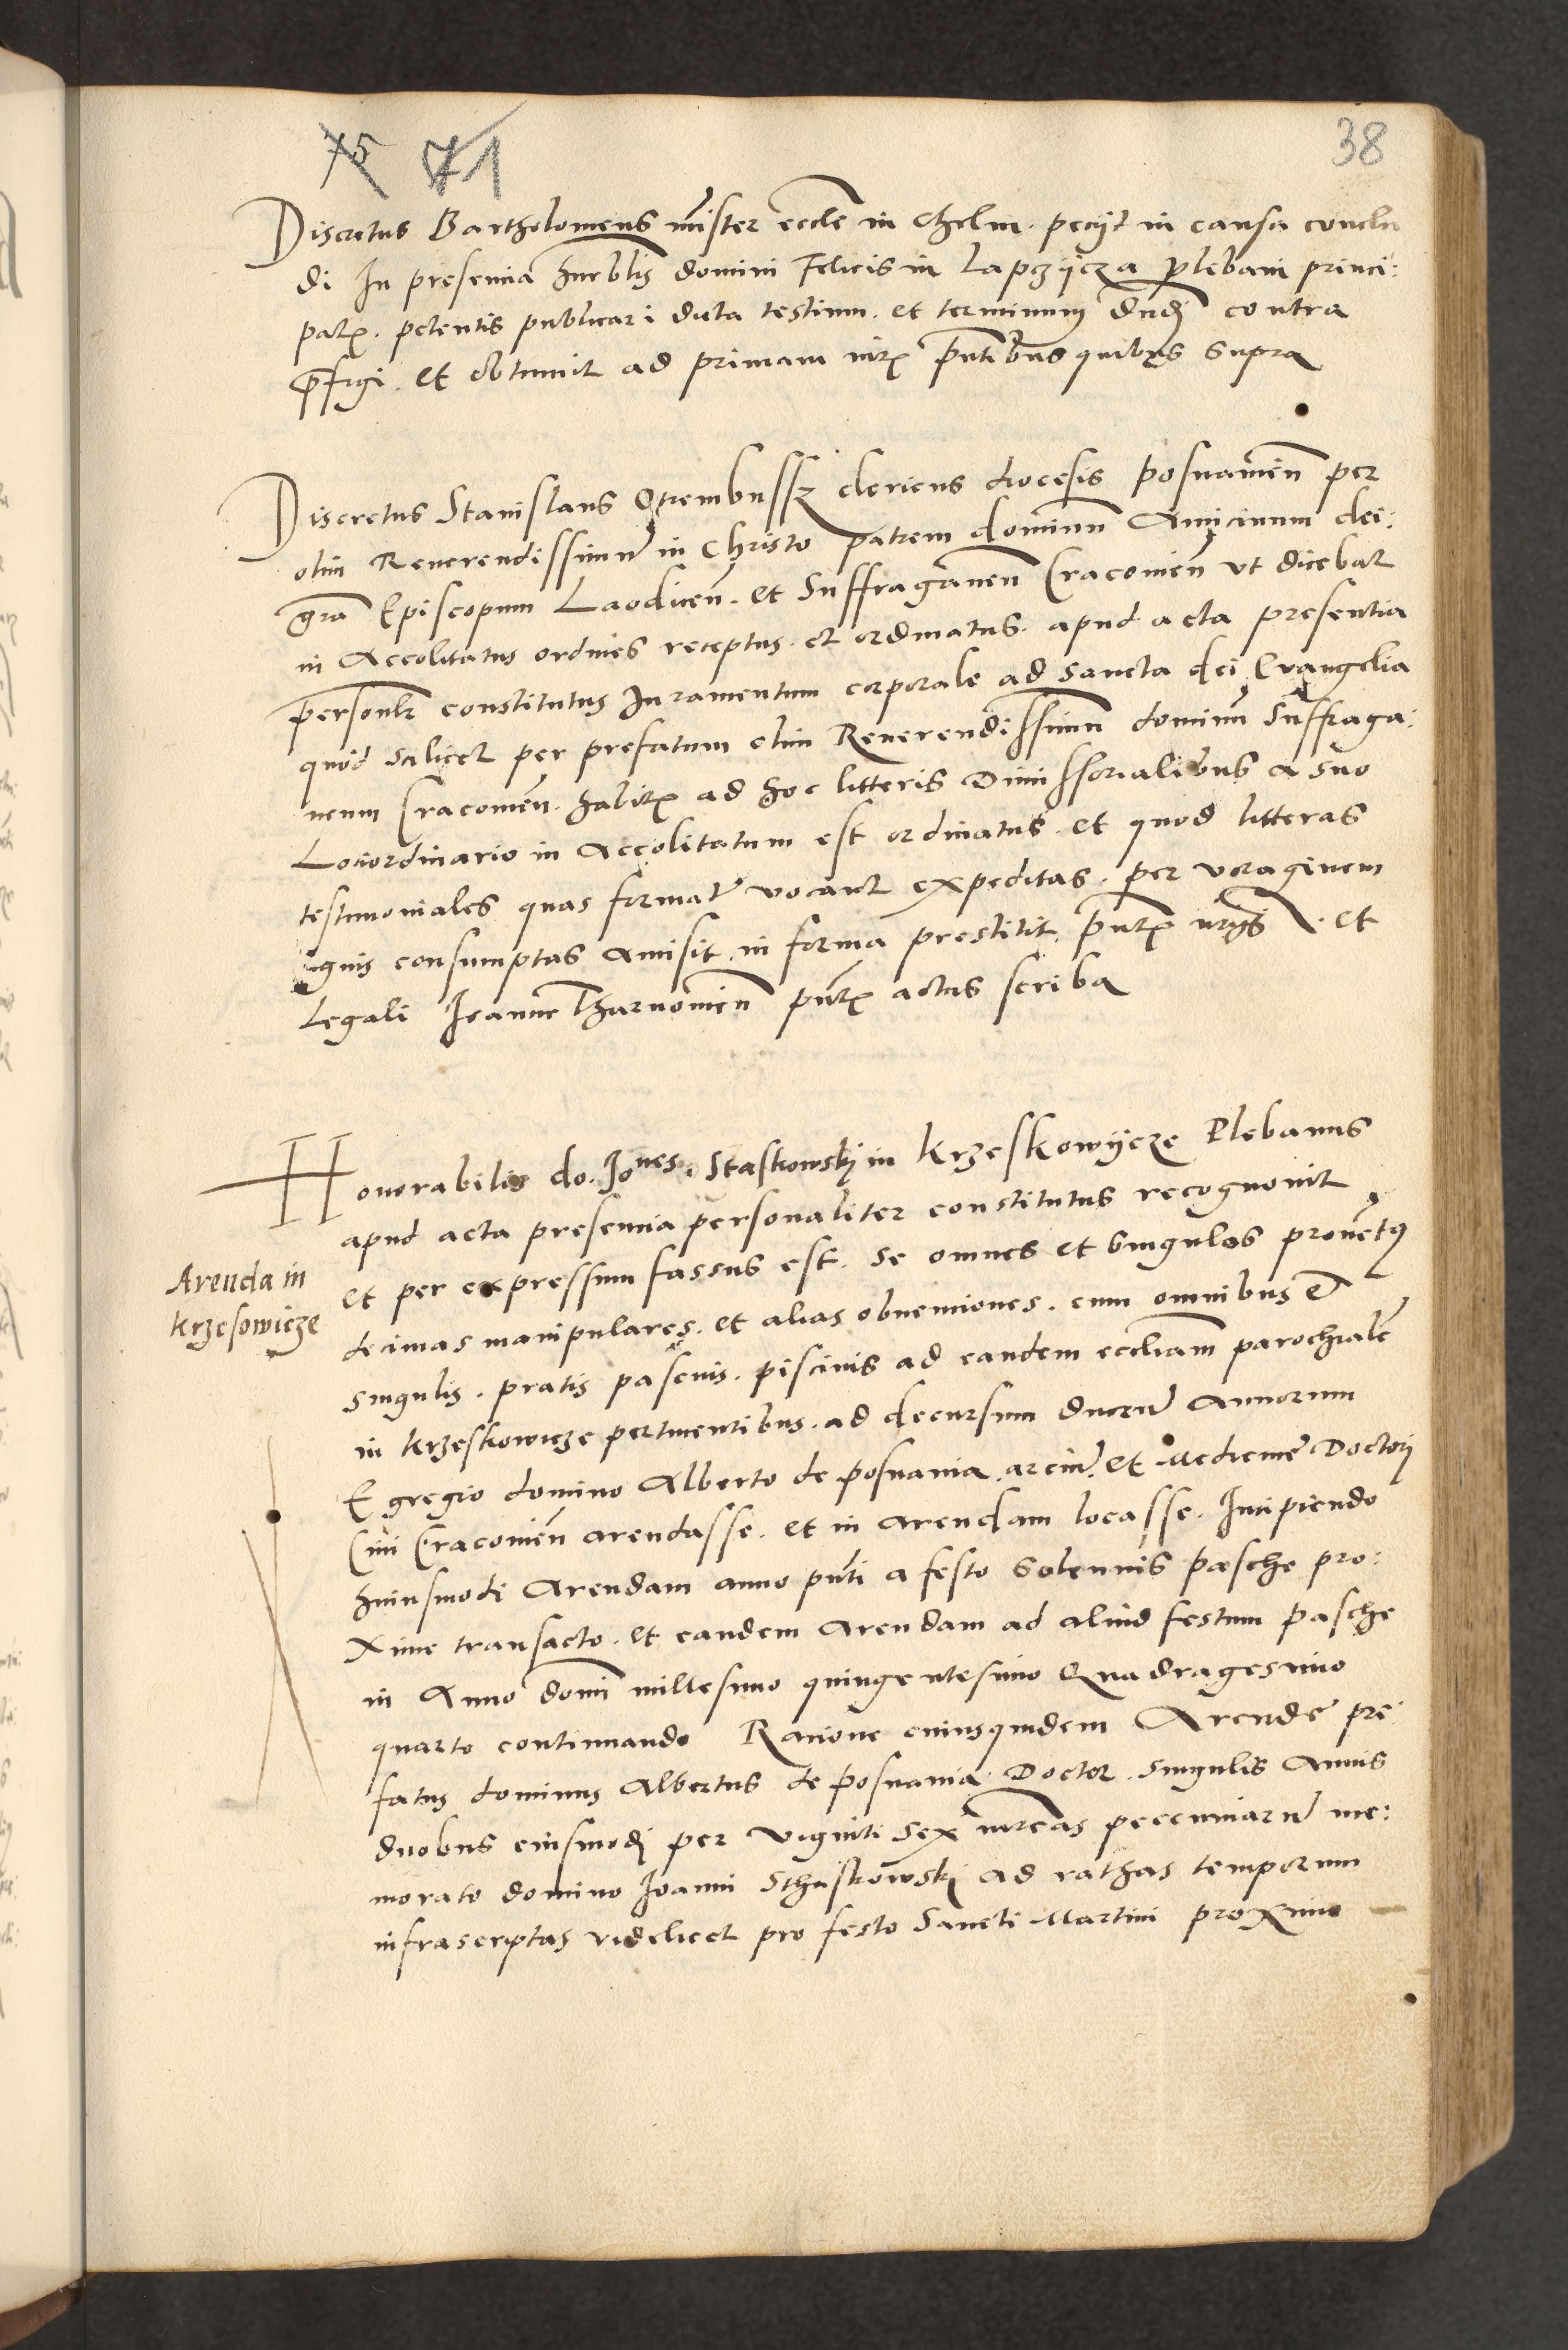 75 71
38
Discretus Bartholomeus mister eccle in Chelm. peciit in causa conclu
di In presencia hnrblis domini Felicis in Lapczicza plebani princi:
palr. petentis publicari dicta testium. et terminum dndi contra
prefigi. et obtinuit ad primam iur. pntibus quibus supra
Discretus Stanislaus Otrembussz clericus diocesis Posnanien per
olim Reverendissimu in Christo patrem dominum Amicinum dei:
gra Episcopum Laodicen. et Suffraganeu Cracovien vt dicebat
in Accolitatus ordines receptus. et ordinatus. apud acta presentia
personlr constitutus Iuramentum corporale ad sancta dei Evangelia
quod scilicet per prefatum olim Reverendissimu dominu Suffraga:
neum Cracovien. habitis ad hoc litteris Dimissorialibus a suo
Lociordinario in Accolitatum est ordinatus. et quod litteras
testimoniales quas format vocant expeditas. per voraginem
ignis consumptas amisit in forma prestitit. pntr et
Legali Ioanne Tharnovien pntr actus scriba
Honorabilis do. Iones. Staskowskj in Krzeskowijcze Plebanus
apud acta presencia personaliter constitutus recognovit
et per expressum fassus est. se omnes et singulos provetus
decimas manipulares. et alias obvenciones. cum omnibus et
Arenda in
Krzesowicze
singulis. pratis pascuis. piscinis ad eandem eccliam parochiale
in Krzeskowicze pertinentibus. ad decursum duoru Annorum
Egregio domino Alberto de Posnania arciu et Medicine Doctori
Civi Cracovien arendasse. et in arendam locasse. Incipiendo
huiusmodi Arendam anno pnti a festo Solennis pasche pro:
xime transacto. et eandem Arendam ad aliud festum pasche
in Anno domi millesimo quingentesimo Quadragesimo
quarto continuando Racione cuiusquidem Arende pre
fatus dominus Albertus de Posnania Doctor. singulis Annis
duobus eiusmodi per viginti sex mrcas peccuniaru me:
morato domino Ioanni Sthaskowski ad rathas temporum
infrascriptas videlicet pro festo Sancti Martini proximo